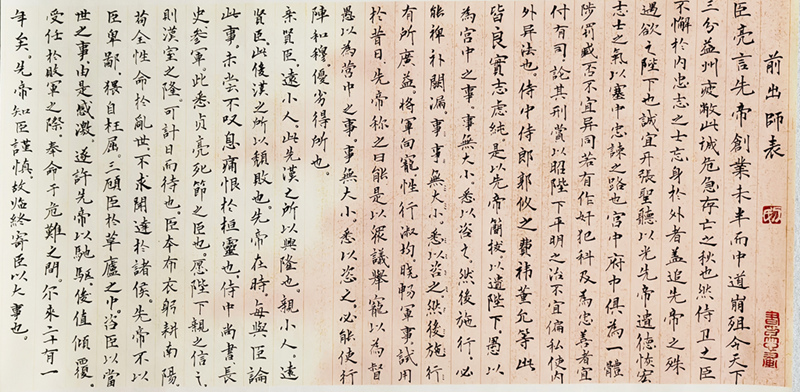 前出師表
臣亮言先帝創業未半而中道崩殂今天下
三分益州疲敝此誠危急存亡之秋也然侍卫之臣
不懈於內忠志之士忘身於外者蓋追先帝之殊
遇欲之陛下也誠宜開張聖聽以光先帝遺德恢宏
志士之氣以塞中忠諫之路也宮中府中俱為一體
陟罰臧否不宜异同若有作奸犯科及為忠善者宜
付有司論其刑賞以昭陛下平明之治不宜偏私使內
外异法也。侍中侍郎郭攸之費禕董允等此
皆良實志慮純。是以先帝簡拔以遺陛下。愚以
為宮中之事。事無大小悉以咨之然後施行。必
能裨補闕漏事。事。無大小。悉以咨之然後施行
有所廣益將軍向寵性行淑均曉暢軍事。試用
於昔日。先帝稱之曰能是以眾議舉寵以為督
愚以為營中之事。事無大小。悉以咨之。必能使行
陣和穆優劣得所也。
親賢臣。遠小人。此先漢之所以興隆也。親小人遠
賢臣。此後漢之所以頹敗也。先帝在時。每與臣論
此事。未嘗不叹息痛恨於桓靈也。侍中尚書長
史參軍。此悉貞亮死節之臣也。愿陛下親之信之
則漢室之隆可計日而待也臣本布衣躬耕南陽
苟全性命於亂世不求聞達於諸侯。先帝不以
臣卑鄙猥自枉屈。三顧臣於草廬之中。咨臣以當
世之事。由是感激。遂許先帝以馳驅後值傾覆。
受任於敗軍之際。奉命于危難之間。尔來二十有一
年矣。先帝知臣謹慎。故臨終寄臣以大事也。